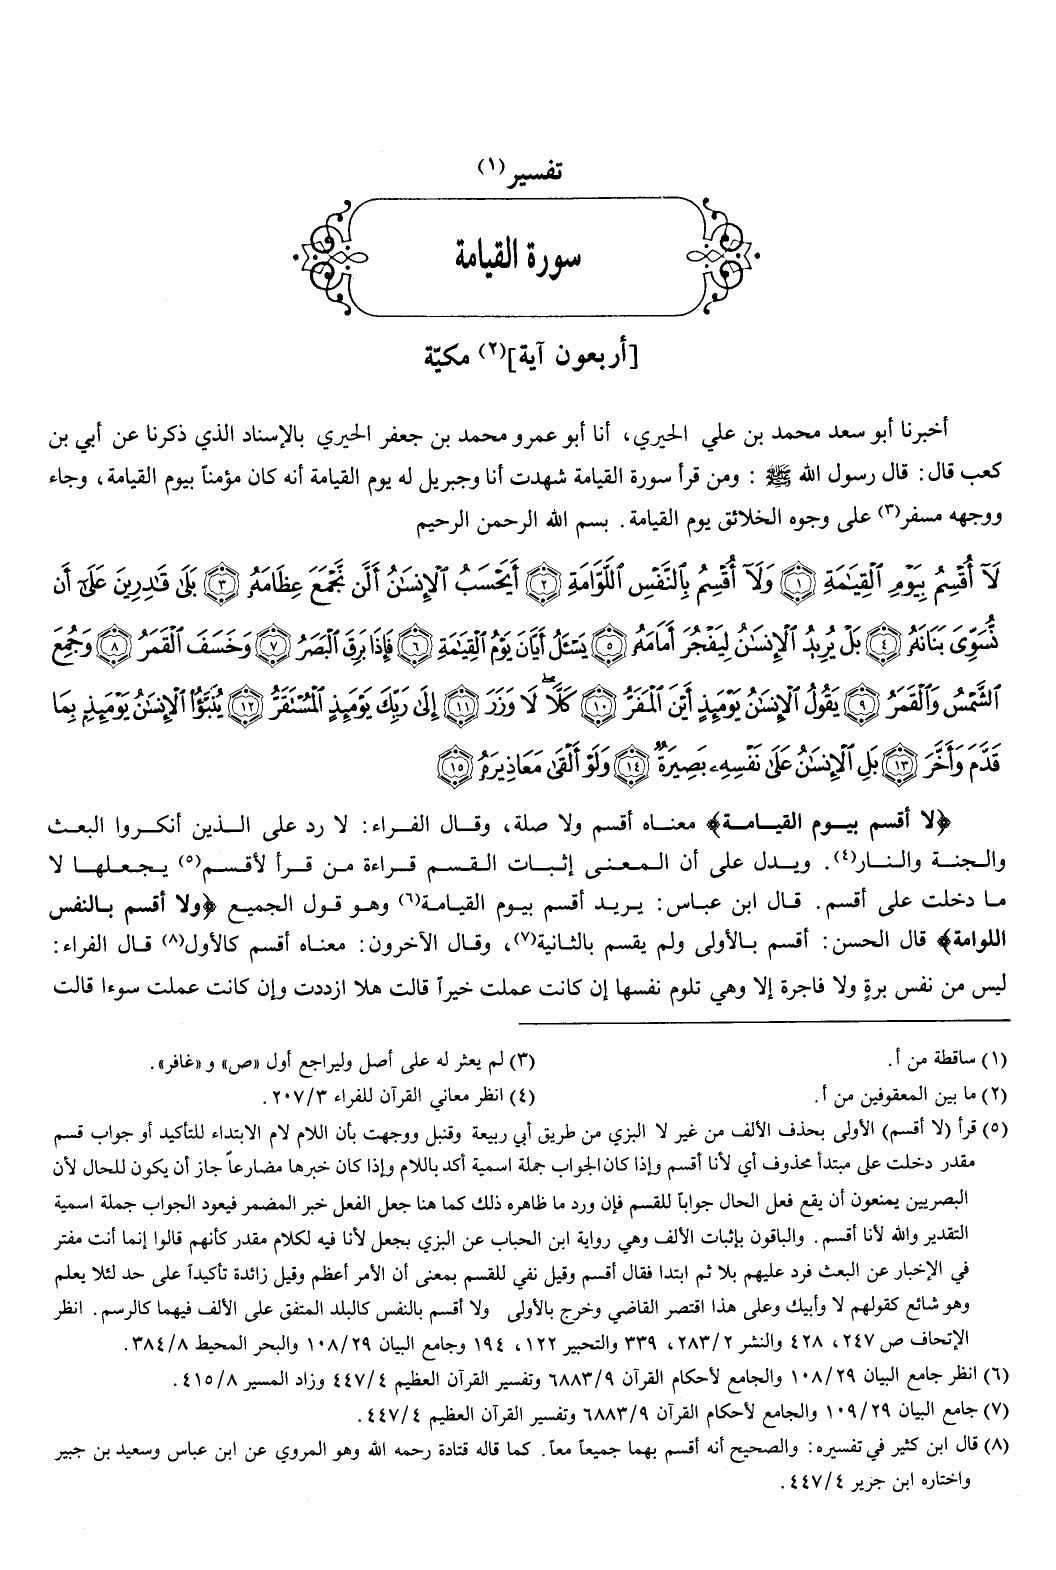 تفسير(١)
سورة القيامة
[أربعون آية](٢) مكيّة
أخبرنا أبو سعد محمد بن علي الحيري، أنا أبو عمرو محمد بن جعفر الحيري بالإسناد الذي ذكرنا عن أبي بن
كعب قال: قال رسول الله ﷺ : ومن قرأ سورة القيامة شهدت أنا وجبريل له يوم القيامة أنه كان مؤمناً بيوم القيامة، وجاء
ووجهه مسفر(٣) على وجوه الخلائق يوم القيامة. بسم الله الرحمن الرحيم
لَآ أُقْسِمُ بِيَوْمِ ٱلْقِيَـٰمَةِ ۝١ وَلَآ أُقْسِمُ بِٱلنَّفْسِ ٱللَّوَّامَةِ ۝٢ أَيَحْسَبُ ٱلْإِنسَـٰنُ أَلَّن نَّجْمَعَ عِظَامَهُۥ ۝٣ بَلَىٰ قَـٰدِرِينَ عَلَىٰٓ أَن
نُّسَوِّىَ بَنَانَهُۥ ۝٤ بَلْ يُرِيدُ ٱلْإِنسَـٰنُ لِيَفْجُرَ أَمَامَهُۥ ۝٥ يَسْـَٔلُ أَيَّانَ يَوْمُ ٱلْقِيَـٰمَةِ ۝٦ فَإِذَا بَرِقَ ٱلْبَصَرُ ۝٧ وَخَسَفَ ٱلْقَمَرُ ۝٨ وَجُمِعَ
ٱلشَّمْسُ وَٱلْقَمَرُ ۝٩ يَقُولُ ٱلْإِنسَـٰنُ يَوْمَئِذٍ أَيْنَ ٱلْمَفَرُّ ۝١٠ كَلَّا لَا وَزَرَ ۝١١ إِلَىٰ رَبِّكَ يَوْمَئِذٍ ٱلْمُسْتَقَرُّ ۝١٢ يُنَبَّؤُا۟ ٱلْإِنسَـٰنُ يَوْمَئِذٍۭ بِمَا
قَدَّمَ وَأَخَّرَ ۝١٣ بَلِ ٱلْإِنسَـٰنُ عَلَىٰ نَفْسِهِۦ بَصِيرَةٌ ۝١٤ وَلَوْ أَلْقَىٰ مَعَاذِيرَهُۥ ۝١٥
﴿لا أقسم بيوم القيامة﴾ معناه أقسم ولا صلة، وقال الفراء: لا رد على الذين أنكروا البعث
والجنة والنار(٤). ويدل على أن المعنى إثبات القسم قراءة من قرأ لأقسم(٥) يجعلها لا
ما دخلت على أقسم. قال ابن عباس: يريد أقسم بيوم القيامة(٦) وهو قول الجميع ﴿ولا أقسم بالنفس
اللوامة﴾ قال الحسن: أقسم بالأولى ولم يقسم بالثانية(٧)، وقال الآخرون: معناه أقسم كالأول(٨) قال الفراء:
ليس من نفس برةٍ ولا فاجرة إلا وهي تلوم نفسها إن كانت عملت خيراً قالت هلا ازددت وإن كانت عملت سوءا قالت
(١) ساقطة من أ.
(٢) ما بين المعقوفين من أ.
(٣) لم يعثر له على أصل وليراجع أول «ص» و«غافر».
(٤) انظر معاني القرآن للفراء ٢٠٧/٣.
(٥) قرأ (لا أقسم) الأولى بحذف الألف من غير لا البزي من طريق أبي ربيعة وقنبل ووجهت بأن اللام لام الابتداء للتأكيد أو جواب قسم
مقدر دخلت على مبتدأ محذوف أي لأنا أقسم وإذا كان الجواب جملة اسمية أكد باللام وإذا كان خبرها مضارعاً جاز أن يكون للحال لأن
البصريين يمنعون أن يقع فعل الحال جواباً للقسم فإن ورد ما ظاهره ذلك كما هنا جعل الفعل خبر المضمر فيعود الجواب جملة اسمية
التقدير والله لأنا أقسم. والباقون بإثبات الألف وهي رواية ابن الحباب عن البزي بجعل لأنا فيه لكلام مقدر كأنهم قالوا إنما أنت مفتر
في الإخبار عن البعث فرد عليهم بلا ثم ابتدا فقال أقسم وقيل نفي للقسم بمعنى أن الأمر أعظم وقيل زائدة تأكيداً على حد لئلا يعلم
وهو شائع كقولهم لا وأبيك وعلى هذا اقتصر القاضي وخرج بالأولى ولا أقسم بالنفس كالبلد المتفق على الألف فيهما كالرسم. انظر
الإتحاف ص ٢٤٧، ٤٢٨ والنشر ٢٨٣/٢، ٣٣٩ والتحبير ١٢٢، ١٩٤ وجامع البيان ١٠٨/٢٩ والبحر المحيط ٣٨٤/٨.
(٦) انظر جامع البيان ١٠٨/٢٩ والجامع لأحكام القرآن ٦٨٨٣/٩ وتفسير القرآن العظيم ٤٤٧/٤ وزاد المسير ٤١٥/٨.
(٧) جامع البيان ١٠٩/٢٩ والجامع لأحكام القرآن ٦٨٨٣/٩ وتفسير القرآن العظيم ٤٤٧/٤.
(٨) قال ابن كثير في تفسيره: والصحيح أنه أقسم بهما جميعاً معاً. كما قاله قتادة رحمه الله وهو المروي عن ابن عباس وسعيد بن جبير
واختاره ابن جرير ٤٤٧/٤.